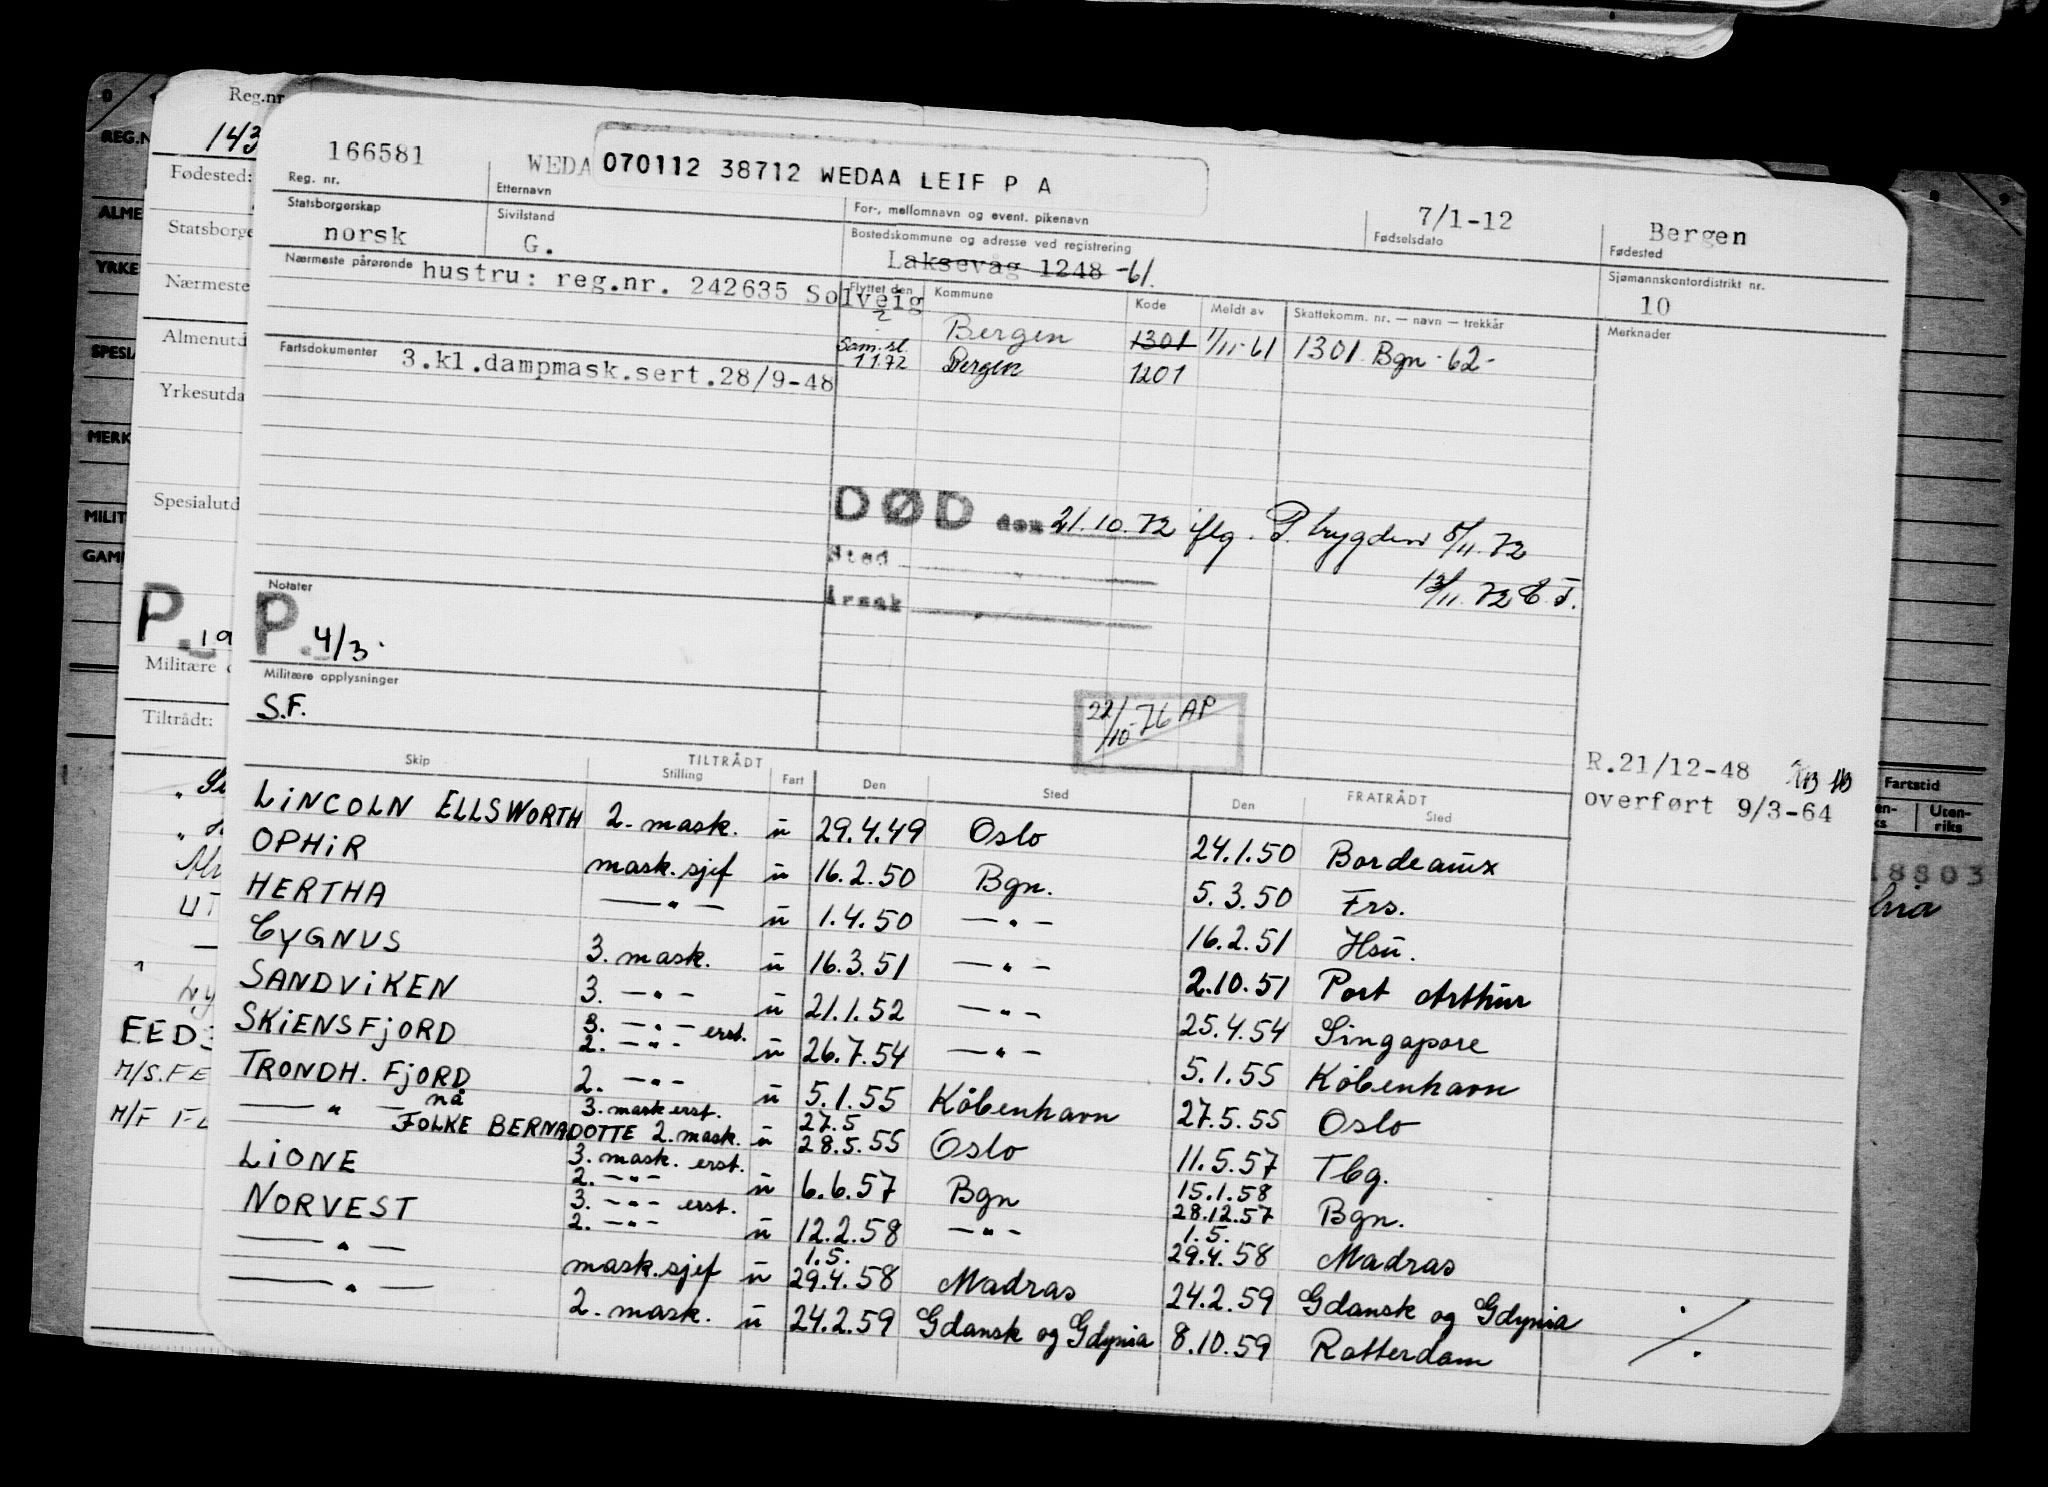 Reg.nr
143
166581
WEDA 070112 38712 WEDAA LEIF P A
7/1-12
Bergen
Reg. nr.
Etternavn
For-, mellomnavn og event. pikenavn
Fødselsdato
Fødested
Statsborgerskap
Sivilstand
Bostedskommune og adresse ved registrering
Sjømannskontordistrikt nr.
norsk
G.
Laksevåg 1248 -61.
10
Nærmeste pårørende hustru: reg.nr. 242635 Solveig
Flyttet den
Kommune
Kode
Meldt av
Skattekomm. nr. — navn — trekkår
Merknader
2
Bergen 1301 1/11-61 1301 Bgn -62-
Sam.sl.
1172 Bergen 1201
Fartsdokumenter 3.kl.dampmask.sert.28/9-48
DØD den 21.10.72 iflg. P. trygden 8/11.72
Sted
13/11.72 E.T.
Årsak
Notater
P. 4/3.
Militære opplysninger
S.F.
22/10-76 AP
R.21/12-48
overført 9/3-64
Skip
TILTRÅDT
Stilling
Fart
Den
Sted
FRATRÅDT
Den
Sted
LINCOLN ELLSWORTH 2. mask. u 29.4.49 Oslo 24.1.50 Bordeaux
OPHIR mask.sjef u 16.2.50 Bgn. 5.3.50 Frs.
HERTHA —"— u 1.4.50 —"— 16.2.51 Hsu.
CYGNUS 3. mask. u 16.3.51 —"— 2.10.51 Port Arthur
SANDVIKEN 3. —"— u 21.1.52 —"— 25.4.54 Singapore
SKIENSFJORD 3. —"— erst. 2. —"— u 26.7.54 —"— 5.1.55 København
TRONDH. FJORD 2. —"— u 5.1.55 København 27.5.55 Oslo
—"— nå FOLKE BERNADOTTE 3. mask erst. 2. mask. u 27.5 28.5.55 Oslo 11.5.57 Tbg.
LIONE 3. mask. erst. 2. —"— u 6.6.57 Bgn 15.1.58 28.12.57 Bgn.
NORVEST 3. —"— erst. 2. —"— u 12.2.58 —"— 1.5. 29.4.58 Madras
—"— mask.sjef u 1.5. 29.4.58 Madras 24.2.59 Gdansk og Gdynia
—"— 2. mask. u 24.2.59 Gdansk og Gdynia 8.10.59 Rotterdam
./.
Fødested:
Statsborge
Nærmeste
Almenutd
Yrkesutda
Spesialutd
P. 19
Militære
Tiltrådt:
M/S.FE
REG.N
ALME
YRKE
SPESI
MERK
MILIT
GAM
Fartstid
Uten-
riks
8803